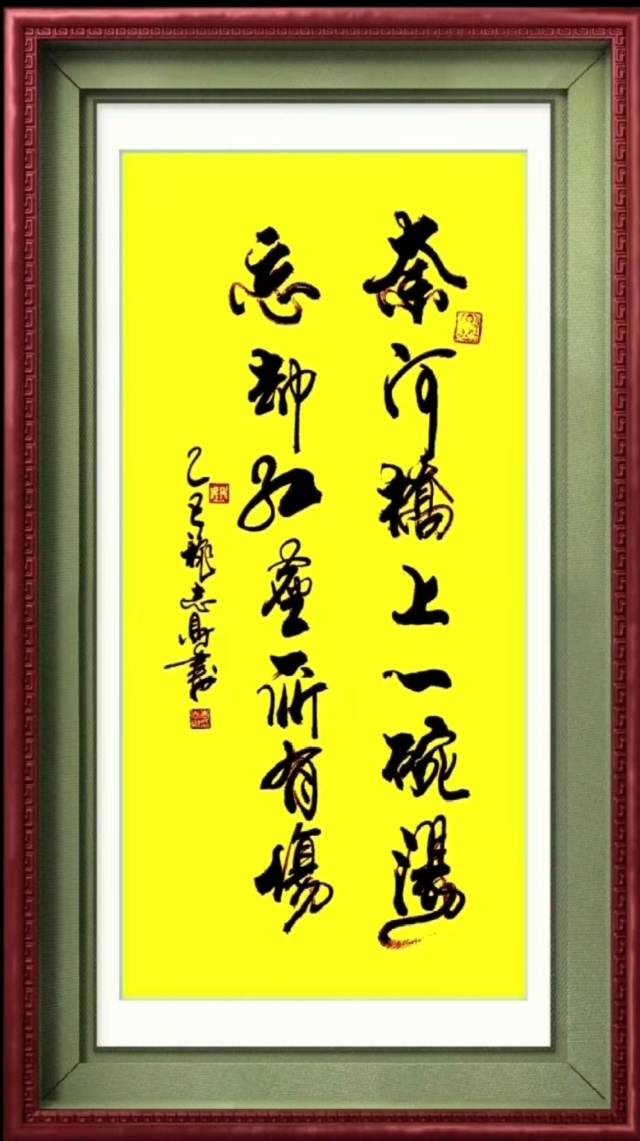 奈河橋上一碗湯
忘却紅塵所有傷
乙巳 志 書